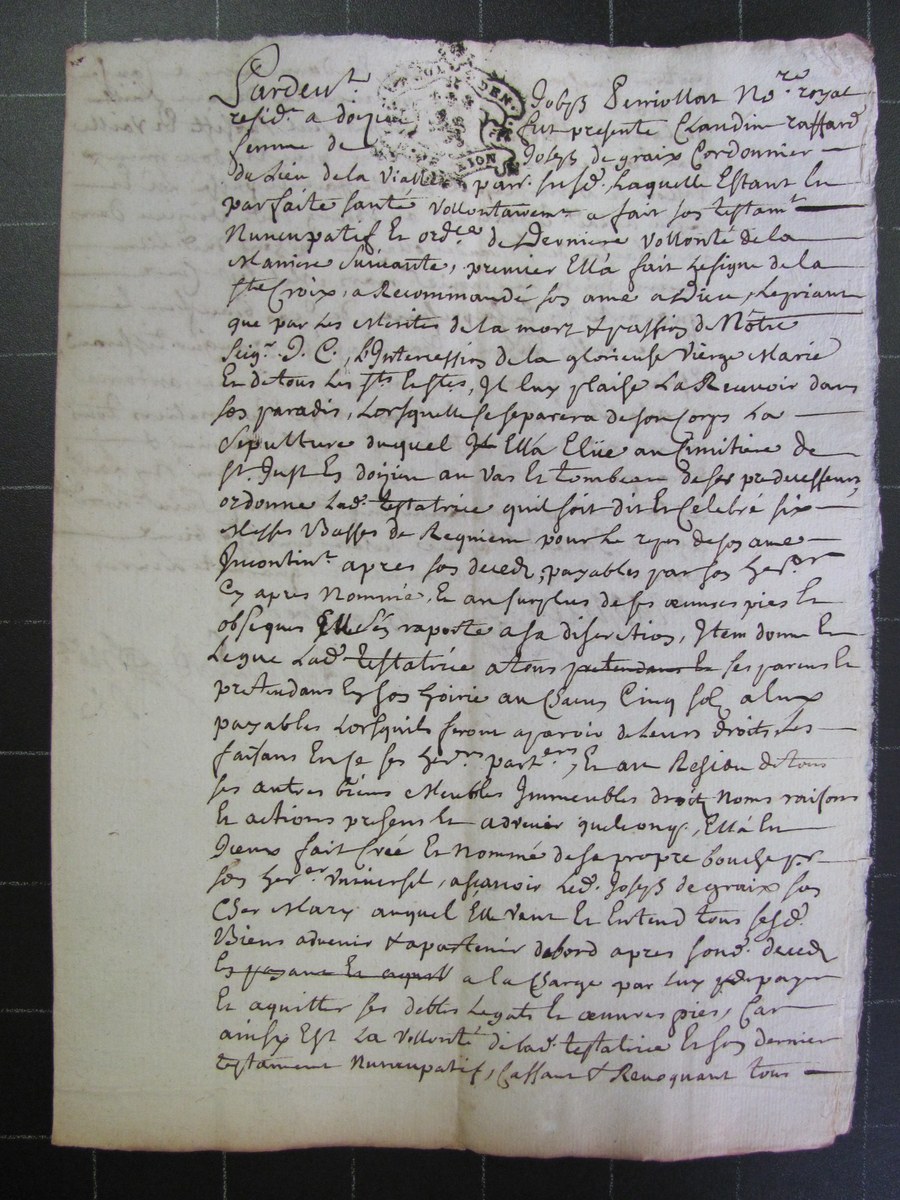 Pardevt. Joseph Perriollat No.re royal
resid.t a doyzieu fut presente Claudine raffard
femme de Joseph de graix Cordonnier
du Lieu de la Vialle parr. susd. Laquelle Estant En
parfaite santé vollontairemt a fait son testamt
Nuncupatif Et ord.ce de Derniere vollonté de la
Maniere suivante, premier Ell'a fait le signe de la
Ste Croix, a Recommandé son ame a Dieu, Le priant
que par Les Merites de la mort & passion de Nôtre
Seigr. J. C., L'Intercession de la glorieuse Vierge Marie
Et de tous Les Sts Et Stes, Il luy plaise La Recevoir dans
son paradis, Lorsquelle se separera de son Corps La
sepulture duquel Ell'a Eliüe au Cimitiere de
St. Just En doizieu au vas Et tombeau de ses predecesseurs,
ordonne Lad. testatrice quil soit dit Et Célebré six
Messes Basses de Requiem pour le repos de son ame
Incontint. apres son decedz, payables par son her.er
Cy apres Nommé, Et au surplus de ses œuvres pies Et
obseques Elle s'en raporte a sa discretion, Item donne Et
Legue Lad. testatrice a tous pretendans Et ses parens Et
pretendans En son hoirie au Chacun Cinq solz a Eux
payables Lorsquils feront aparoir de Leurs droits Les
faisans En ce ses her.ers part.ers, Et au Residu de tous
ses autres biens Meubles Immeubles droitz Noms raisons
Et actions presens Et advenir quelconq., Ell'a En
Iceux fait Créé Et Nommé de sa propre bouche pr
son her.er universel, ascavoir Led. Joseph de graix son
Cher Mary auquel Elle veut Et Entend tous sesd.
Biens advenir & apartenir dabord apres sond. decedz
a la Charge par luy de payer
Et aquitter ses debtes Legats Et œuvres pies, Car
ainsy Est La vollonté de lad. testatrice Et son dernier
testament Nuncupatif, Cassant & Revoquant tous